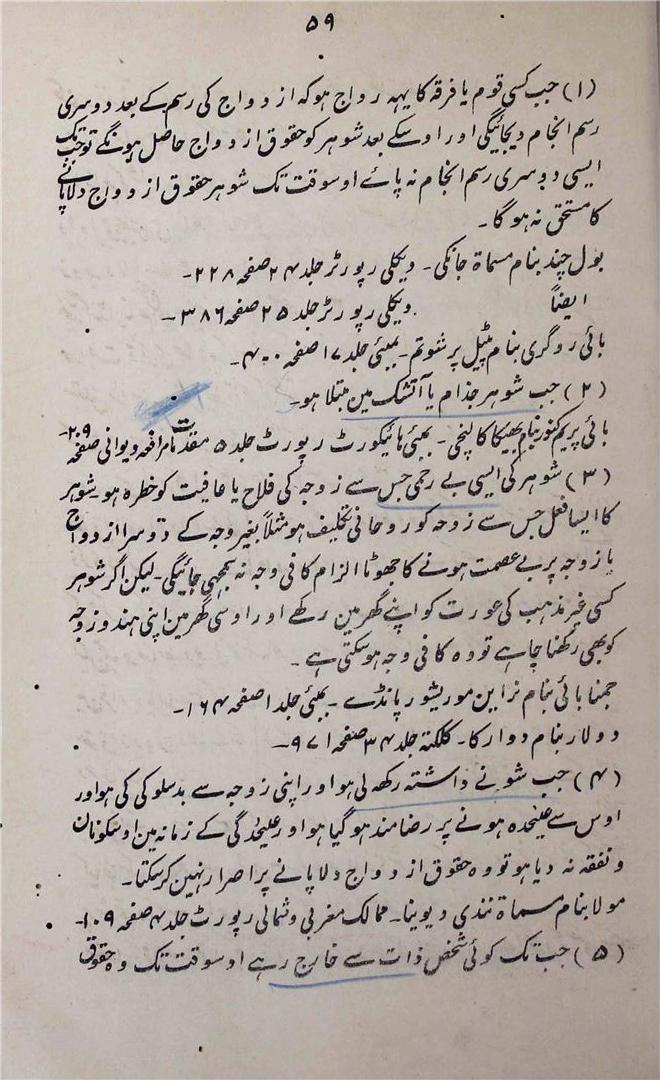 ۵۹
(۱) جب کسی قوم یا فرقہ کا یہہ رواج ہو کہ ازدواج کی رسم کے بعد دوسری
رسم انجام دیجائیگی اور اوسکے بعد شوہر کو حقوق ازدواج حاصل ہونگے توجب تک
ایسی دوسری رسم انجام نہ پائے اوسوقت تک شوہر حقوق ازدواج دلاپانے
کا مستحق نہ ہوگا۔
بول چند بنام مسماۃ جانکی۔ ویکلی رپورٹر جلد ۲۴ صفحہ ۲۲۸۔
ایضاً ویکلی رپورٹر جلد ۲۵ صفحہ ۳۸۶۔
بائی روگری بنام پٹیل پرشوتم۔ بمبئی جلد ۱۷ صفحہ ۴۰۰۔
(۲) جب شوہر جذام یا آتشک مین مبتلا ہو۔
بائی پریم کنور بنام بھیکا کالنچی۔ بمبئی ہائیکورٹ رپورٹ جلد ۵ مقدمات مرافعہ دیوانی صفحہ ۲۰۹۔
(۳) شوہر کی ایسی بے رحمی جس سے زوجہ کی فلاح یا عافیت کو خطرہ ہو یشوہر
کا ایسا فعل جس سے زوجہ کو روحانی تکلیف ہو مثلاً بغیر وجہ کے دوسرا ازدواج
یا زوجہ پر بے عصمت ہونے کا جھوٹا الزام کافی وجہ نہ سمجھی جائیگی۔ لیکن اگر شوہر
کسی غیر مذہب کی عورت کو اپنے گھر مین رکھے اور اوسی گھر مین اپنی ہندو زوجہ
کو بھی رکھنا چاہے تو وہ کافی وجہ ہوسکتی ہے۔
جمنا بائی بنام نراین موریشور پانڈے۔ بمبئی جلد ۱ صفحہ ۱۶۴۔
دولار بنام دوارکا۔ کلکتہ جلد ۳۴ صفحہ ۹۷۱۔
(۴) جب شو نے داشتہ رکھہ لی ہو اور اپنی زوجہ سے بدسلوکی کی ہو اور
اوس سے علیٰحدہ ہونے پر رضامند ہوگیا ہو اور علیٰحدگی کے زمانہ مین اوسکو نان
و نفقہ نہ دیا ہو تو وہ حقوق ازدواج دلاپانے پر اصرار نہین کرسکتا۔
مولا بنام مسماۃ نندی دیوینا۔ ممالک مغربی وشمالی رپورٹ جلد ۴ صفحہ ۱۰۹۔
(۵) جب تک کوئی شخص ذات سے خارج رہے اوسوقت تک وہ حقوق